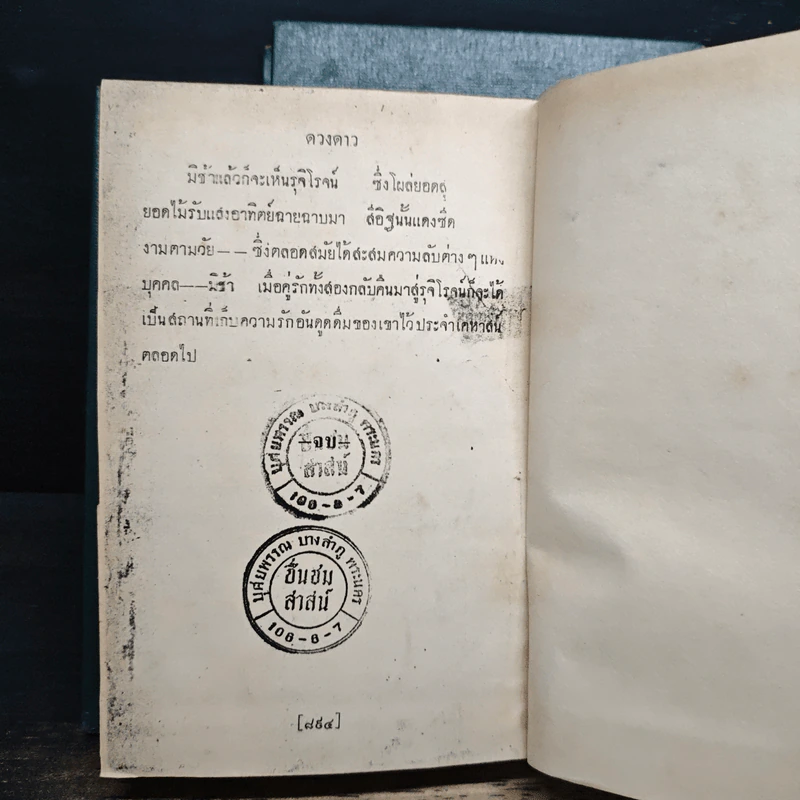 ดวงดาว
มิช้าแล้วก็จะเห็นรุจิโรจน์ ซึ่งโผล่ยอดสู
ยอดไม้รับแสงอาทิตย์ฉายฉาบมา สีอิฐนั้นแดงซีด
งามตามวัย–– ซึ่งตลอดสมัยได้สะสมความลับต่าง ๆ แห
บุคคล––มิช้า เมื่อคู่รักทั้งสองกลับคืนมาสู่รุจิโรจน์ก็จะได้
เป็นสถานที่เก็บความรักอันดูดดื่มของเขาไว้ประจำเคหาสน์
ตลอดไป
บุศยพรรณ บางลำภู พระนคร
สาส์น
106-6-7
บุศยพรรณ บางลำภู พระนคร
ชื่นชม
สาส์น
106-6-7
[๘๙๔]